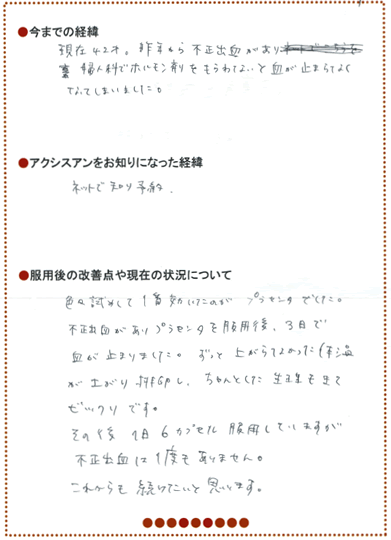 ●今までの経緯
現在42才。昨年から不正出血があり
婦人科でホルモン剤をもらわないと血が止まらなく
なってしまいました。
●アクシスアンをお知りになった経緯
ネットで知り予約.
●服用後の改善点や現在の状況について
色々試して1番効いたのがプラセンタでした。
不正出血がありプラセンタを服用後、3日で
血が止まりました。ずっと上がらなかった体温
が上がり排卵し、ちゃんとした生理も来て
ビックリです。
その後1日6カプセル服用していますが
不正出血は1度もありません。
これからも続けたいと思います。